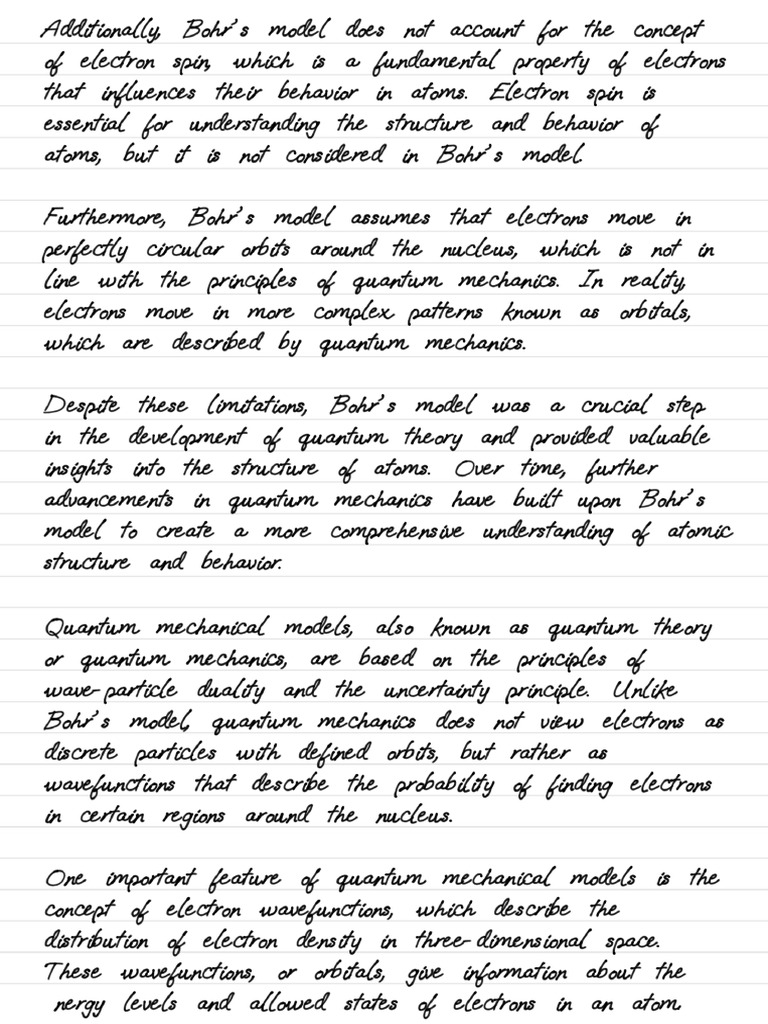 Additionally, Bohr's model does not account for the concept
of electron spin, which is a fundamental property of electrons
that influences their behavior in atoms. Electron spin is
essential for understanding the structure and behavior of
atoms, but it is not considered in Bohr's model.
Furthermore, Bohr's model assumes that electrons move in
perfectly circular orbits around the nucleus, which is not in
line with the principles of quantum mechanics. In reality,
electrons move in more complex patterns known as orbitals,
which are described by quantum mechanics.
Despite these limitations, Bohr's model was a crucial step
in the development of quantum theory and provided valuable
insights into the structure of atoms. Over time, further
advancements in quantum mechanics have built upon Bohr's
model to create a more comprehensive understanding of atomic
structure and behavior.
Quantum mechanical models, also known as quantum theory
or quantum mechanics, are based on the principles of
wave-particle duality and the uncertainty principle. Unlike
Bohr's model, quantum mechanics does not view electrons as
discrete particles with defined orbits, but rather as
wavefunctions that describe the probability of finding electrons
in certain regions around the nucleus.
One important feature of quantum mechanical models is the
concept of electron wavefunctions, which describe the
distribution of electron density in three-dimensional space.
These wavefunctions, or orbitals, give information about the
nergy levels and allowed states of electrons in an atom.